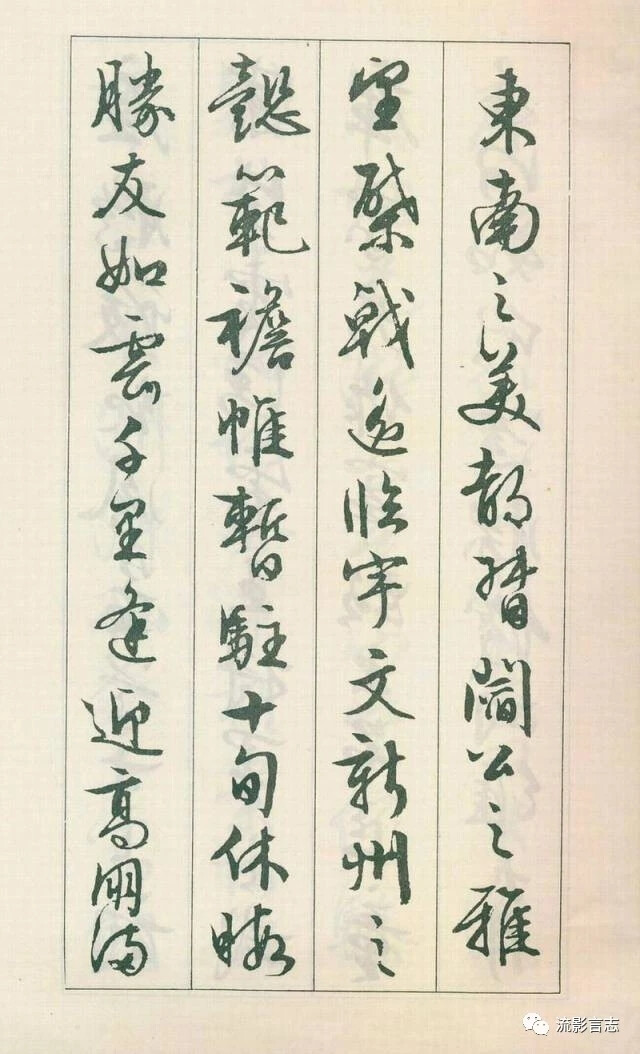 東南之美都督閻公之雅
望棨戟遙臨宇文新州之
懿範襜帷暫駐十旬休暇
勝友如雲千里逢迎高朋滿
流影言志